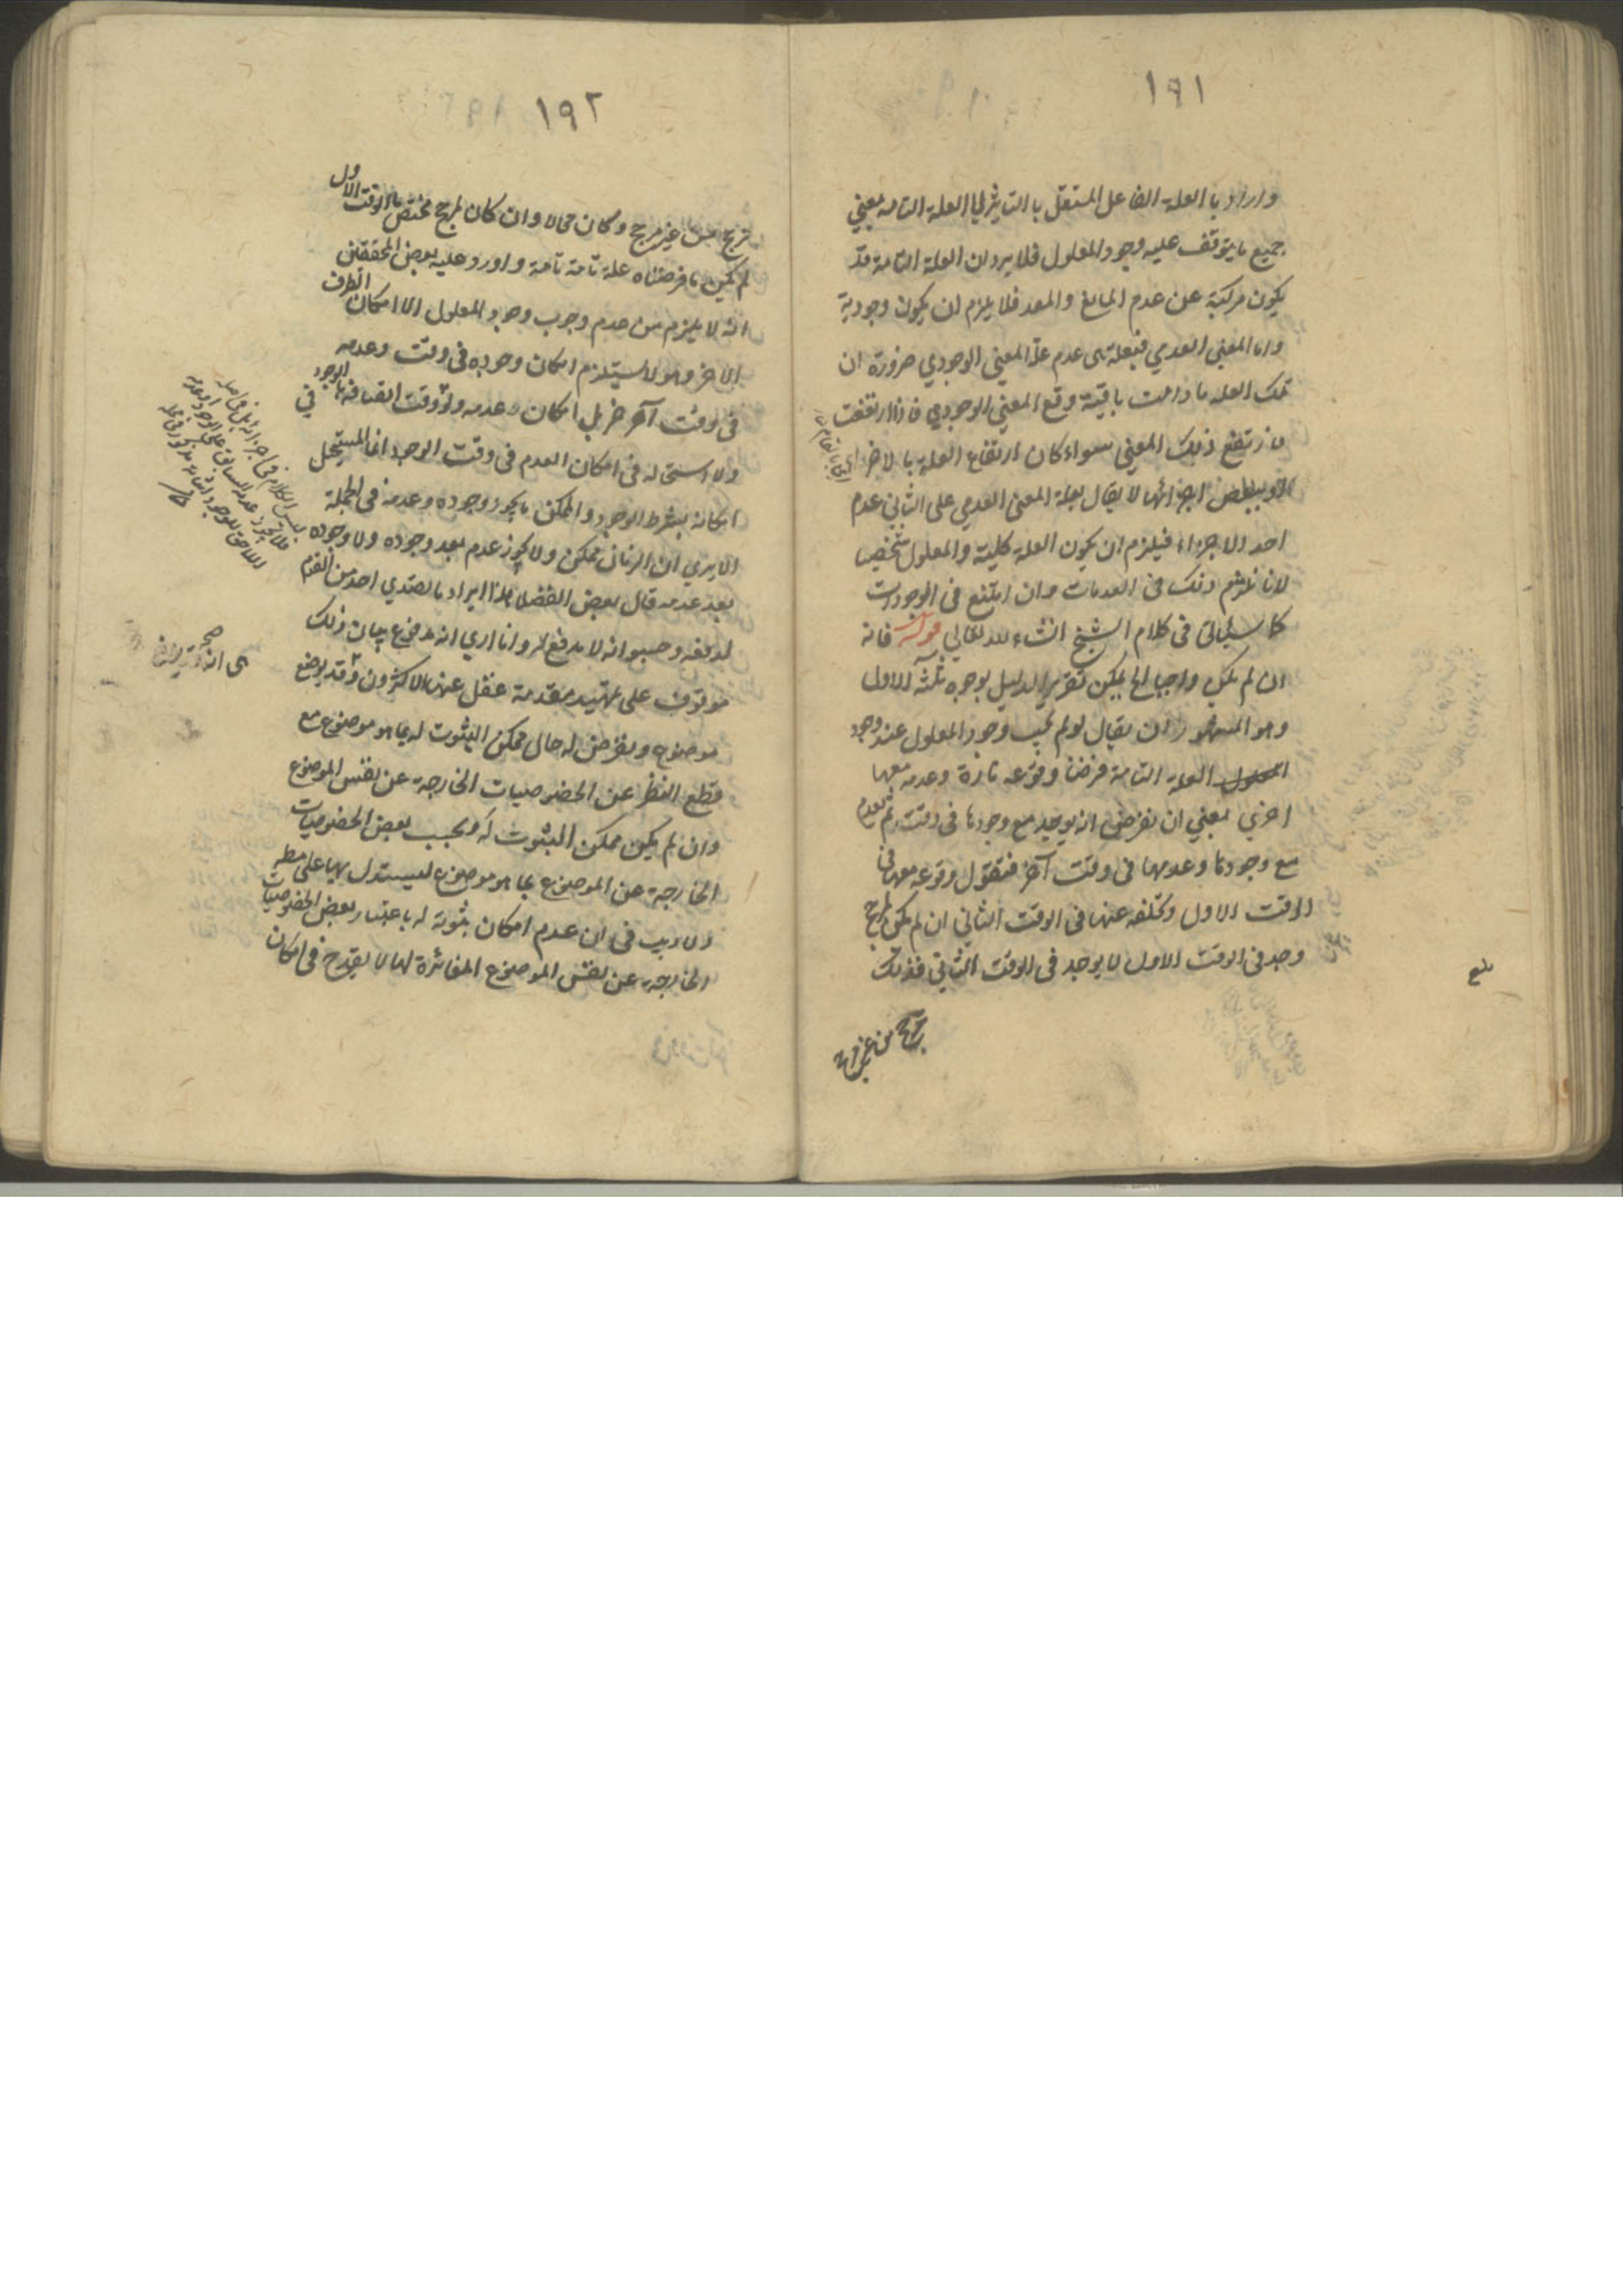 ١٩١
واراد بالعلة الفاعل المستقل بالتاثير اي العلة التامة بمعني
جميع ما يتوقف عليه وجود المعلول فلا يرد ان العلة التامة قد
يكون مركبة عن عدم المانع والمعد فلا يلزم ان يكون وجودية
واما المعني العدمي فبعلة هي عدم علة المعني الوجودي ضرورة ان
تلك العلة ما دامت باقية وقع المعني الوجودي فاذا ارتفعت
ارتفع ذلك المعني سواء كان ارتفاع العلة بالاخرة
او ببعض اجزائها لا يقال بعلة المعني العدمي على الثاني عدم
احد الاجزاء فيلزم ان يكون العلة كلية والمعلول شخصيا
لانا نلتزم ذلك في العدمات وان امتنع في الوجودات
كما سيأتي في كلام الشيخ انشاء الله تعالي قوله فانه
ان لم يكن واجبا الخ يمكن تقرير الدليل بوجوه ثلثة الاول
وهو المشهور ان يقال لو لم يجب وجود المعلول عند وجود
العلة التامة فرضنا وقوعه تارة وعدمه معها
اخري بمعني ان نفرض انه يوجد مع وجودها في وقت ثم يعدم
مع وجودها وعدمها في وقت آخر فنقول وقوعه معها في
الوقت الاول وتخلفه عنها في الوقت الثاني ان لم يكن لمرجح
وجد في الوقت الاول لا يوجد في الوقت الثاني فذلك
بلغ
ترجح من غير مرجح
١٩٢
ترجح من غير مرجح وكان محالا وان كان لمرجح مختص بالوقت الاول
لم يكن ما فرضناه علة تامة تامة واورد عليه بعض المحققين
انه لا يلزم من عدم وجوب وجود المعلول الا امكان الطرف
الاخر وهو لا يستلزم امكان وجوده في وقت وعدمه
في وقت آخر بل امكان عدمه ولو وقت اتصافه بالوجود
ولا استحالة في امكان العدم في وقت الوجود انما المستحيل
امكانه بشرط الوجود والممكن ما يجوز وجوده وعدمه في الجملة
الا يري ان الزمان ممكن ولا يجوز عدمه بعد وجوده ولا وجوده
بعد عدمه قال بعض الفضلا هذا ايراد ما تصدي احد من القوم
لدفعه وحسبوا انه لا مدفع له وانا اري انه مدفوع بيان ذلك
موقوف على تمهيد مقدمة غفل عنها الاكثرون وقد يوضع
موضوع ويفرض له حال ممكن الثبوت له بما هو موضوع مع
قطع النظر عن الخصوصيات الخارجة عن نفس الموضوع
وان لم يكن ممكن الثبوت له بحسب بعض الخصوصيات
الخارجة عن الموضوع بما هو موضوع ليستدل بها على مطلب
ولا ريب في ان عدم امكان ثبوته له باعتبار بعض الخصوصيات
الخارجة عن نفس الموضوع المغائرة لها لا يقدح في امكان